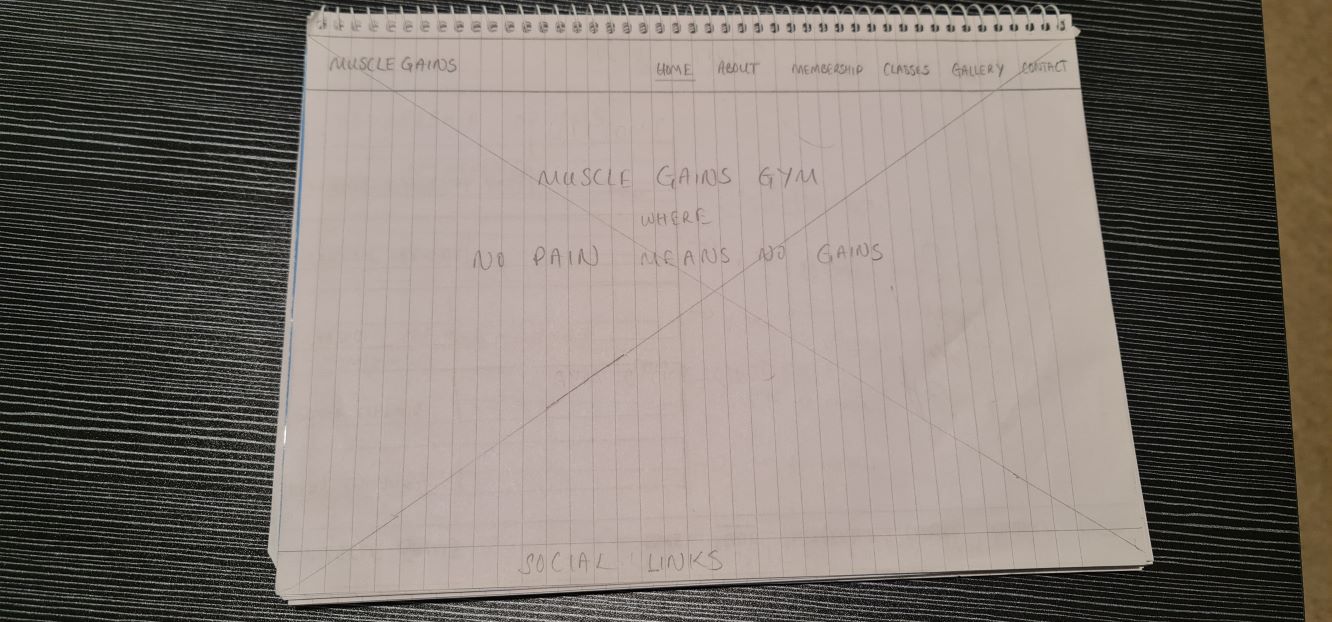 MUSCLE GAINS HOME ABOUT MEMBERSHIP CLASSES GALLERY CONTACT
MUSCLE GAINS GYM
WHERE
NO PAIN MEANS NO GAINS
SOCIAL LINKS